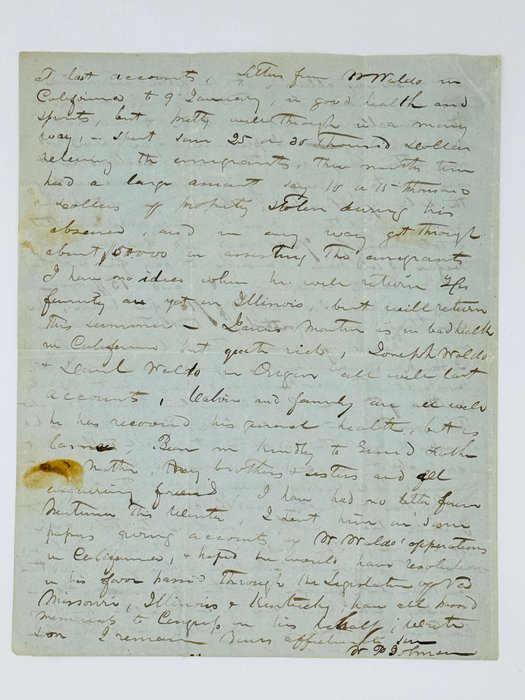 at last accounts, Letters from W Waldo in
California to 9 January, in good health and
spirits, but pretty well through in a money
way, - spent some 25 or 30 thousand dollars
relieving the emigrants, three months time
had a large amount say 10 a 15 thousand
dollars of property stolen during his
absence, and in any way got through
about $50000 in assisting the emigrants
I have no idea when he will return His
family are yet in Illinois, but will return
this summer - James Martin is in bad health
in California but quite rich, Joseph Waldo
& Daniel Waldo in Oregon all well last
accounts, Calvin and family are all well
he has recovered his usual health, but is
Bear me kindly to
Mother, my brothers & sisters and all
enquiring friends, I have had no letter from
this Winter, I sent him in some
papers giving accounts of W Waldo' operations
in California, & hoped he would have resolutions
in his favor passed through the Legislature of Va
Missouri, Illinois & Kentucky have all passed
memorials to Congress in his behalf, write
soon I remain Yours affectionate son
W P